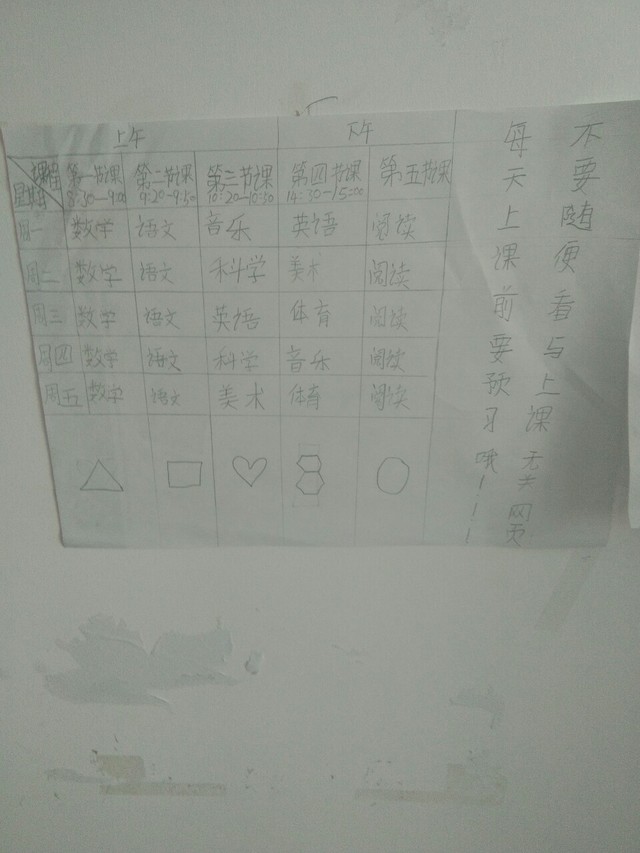 上午 下午
课程 第一节课 第二节课 第三节课 第四节课 第五节课
星期 8:30—9:00 9:20—9:50 10:20—10:50 14:30—15:00
周一 数学 语文 音乐 英语 阅读
周二 数学 语文 科学 美术 阅读
周三 数学 语文 英语 体育 阅读
周四 数学 语文 科学 音乐 阅读
周五 数学 语文 美术 体育 阅读
不要随便看与上课无关网页
每天上课前要预习哦！！！